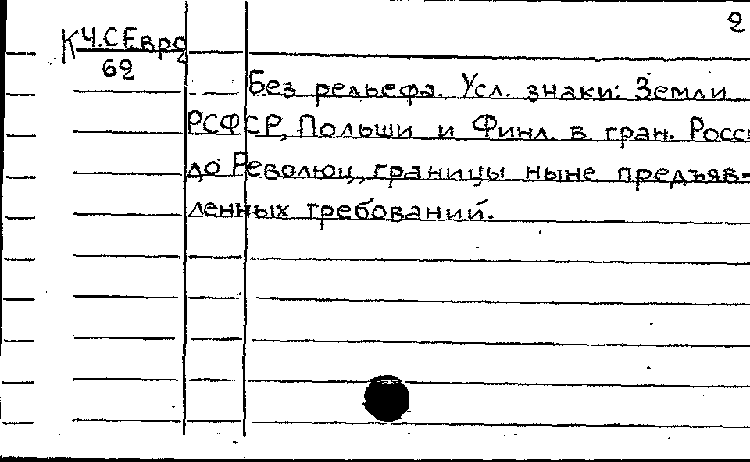 2
К Ч.С Евро
62
Без рельефа. Усл. знаки: Земли
РСФСР, Польши и Финл. в гран. Росси
до Революц., границы ныне предъяв-
ленных требований.